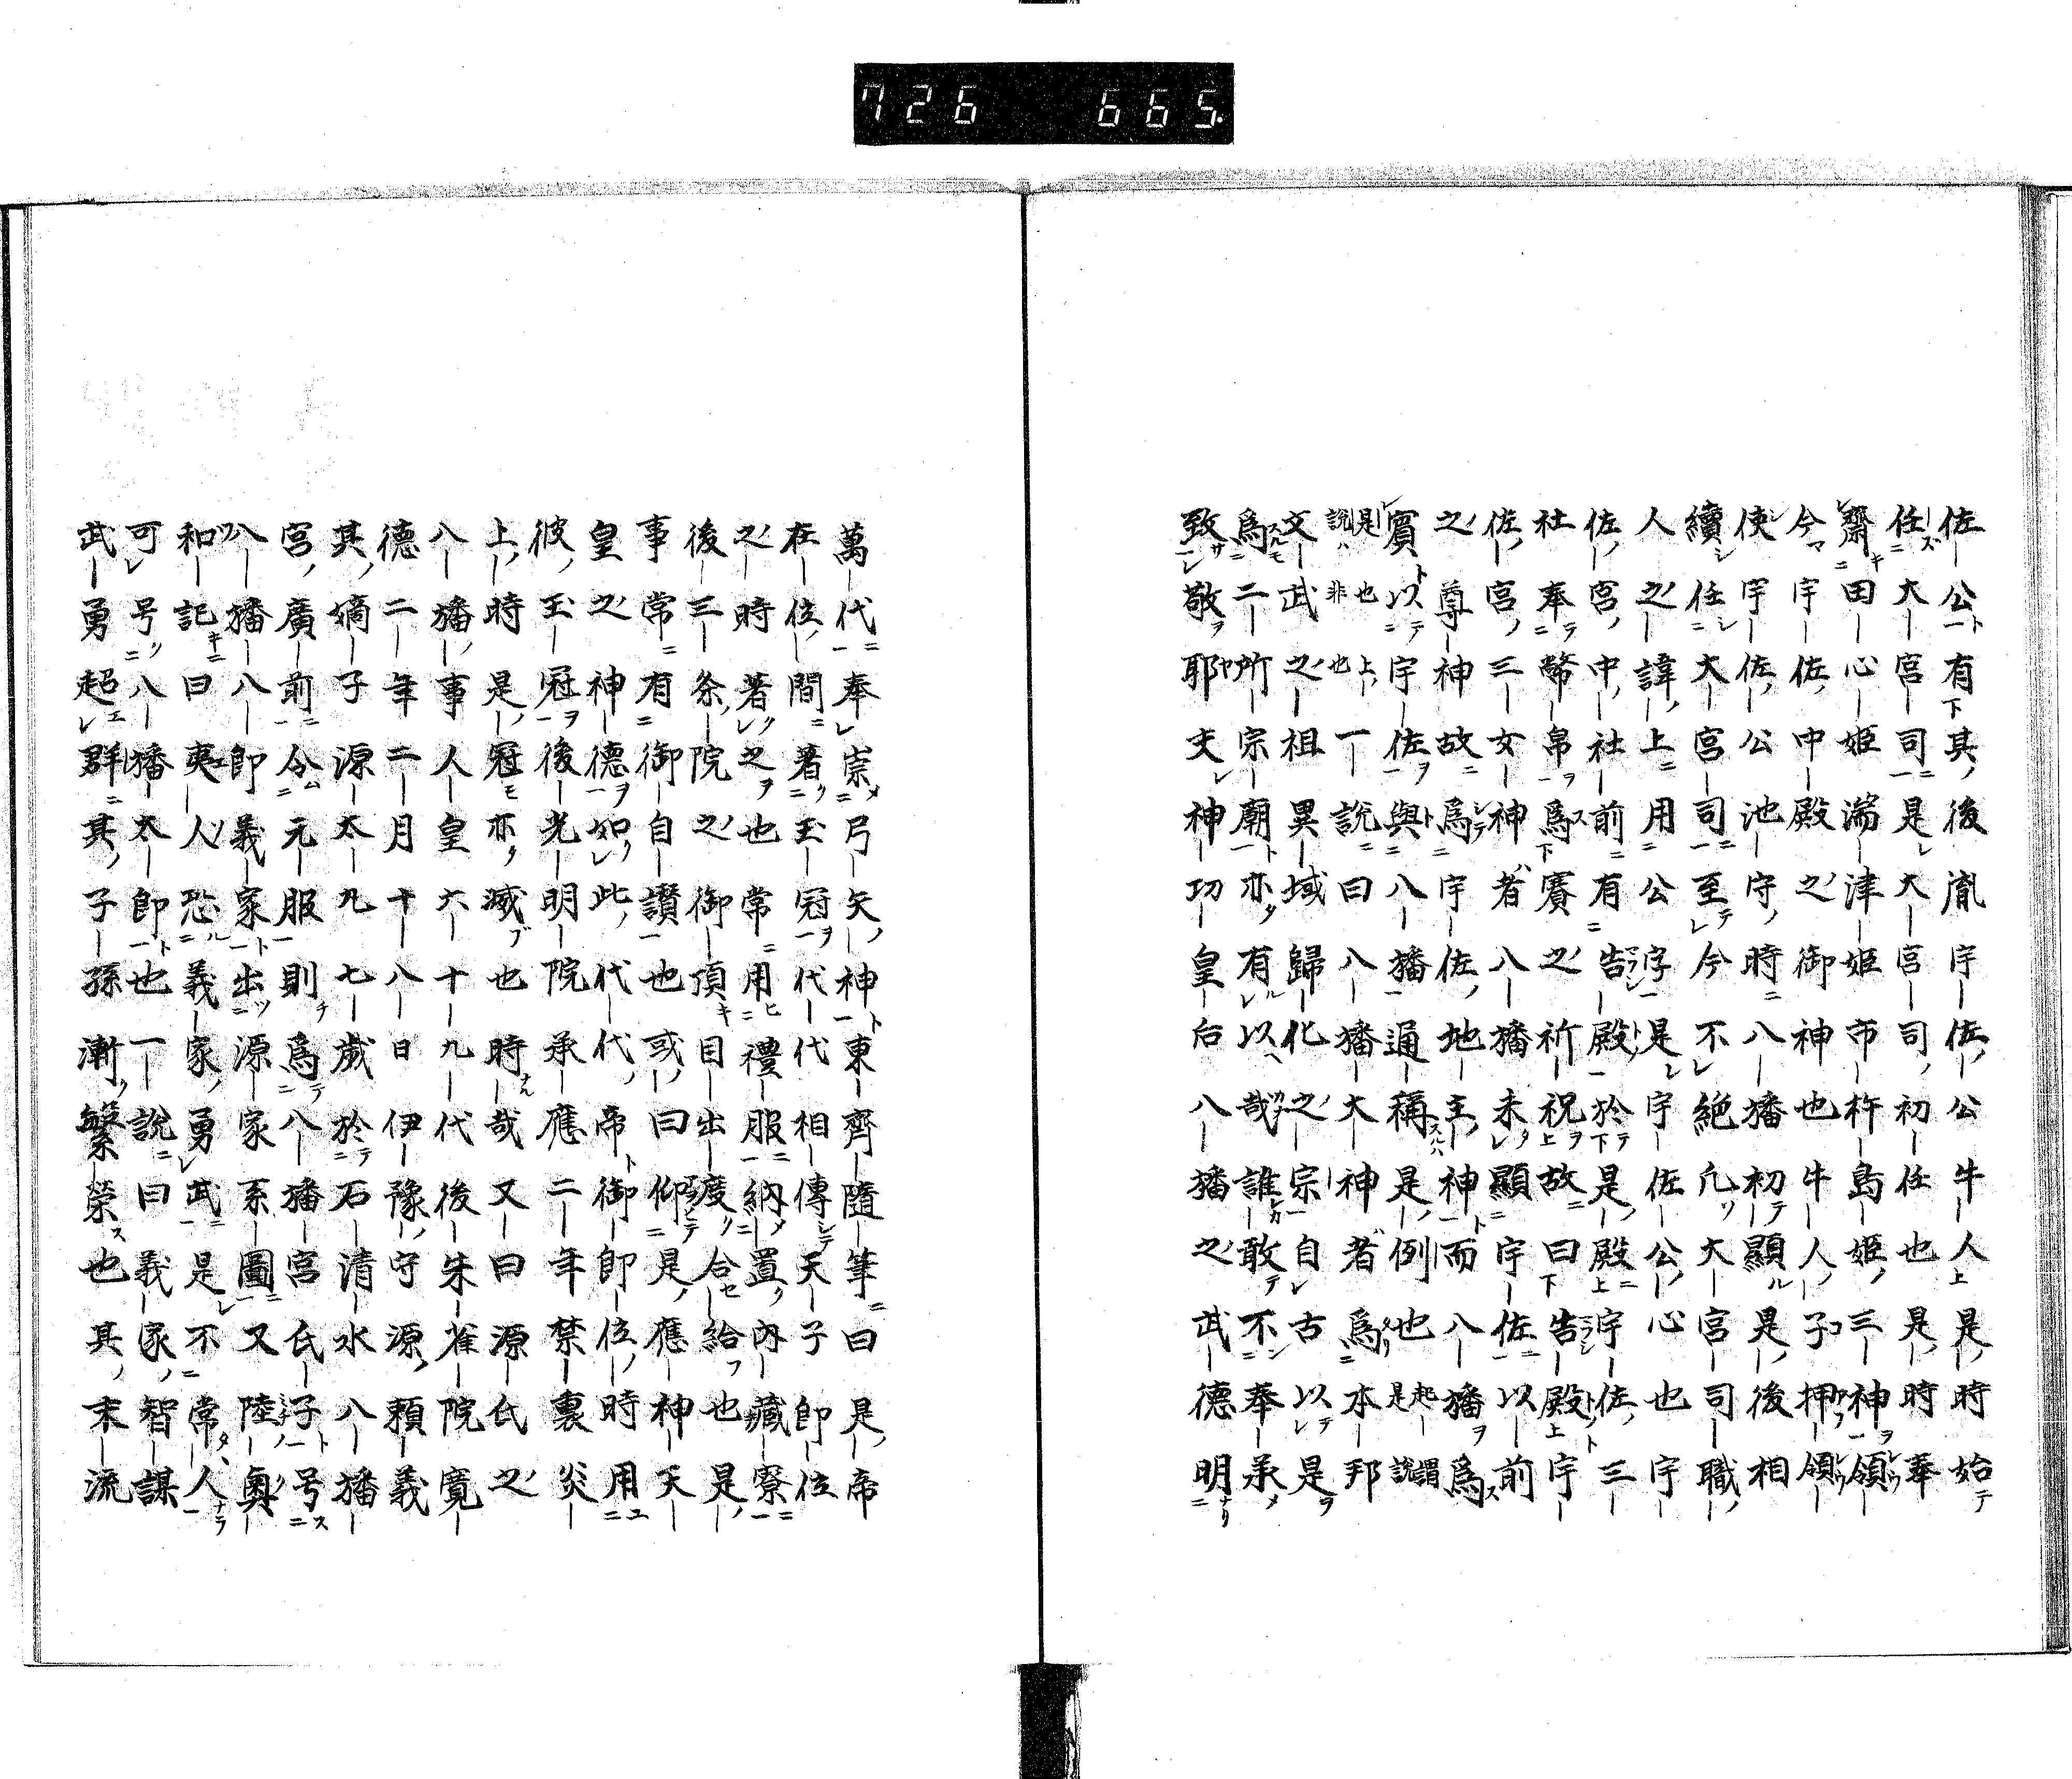 726 665.
佐公有其後胤宇佐公牛人是時始
任大宮司是大宮司初任也是時奉
齋田心姫湍津姫市杵島姫三神領
今宇佐中殿之御神也牛人子押領
使宇佐公池守時八幡初顯是後相
續任大宮司至今不絶凡大宮司職
人之諱上用公字是宇佐公心也宇
佐宮中社前有告殿於是殿宇佐三
社奉幣帛爲賽之祈祝故曰告殿宇
佐宮三女神者八幡未顯宇佐以前
之尊神故爲宇佐地主神而八幡爲
賓以宇佐與八幡通稱是例也起謂是説
是也上説非也一説曰八幡大神者爲本邦
文武之祖異域歸化之宗自古以是
爲二所宗廟亦有以哉誰敢不奉承
致敬耶夫神功皇后八幡之武德明
萬代奉崇弓矢神東齊隨筆曰是帝
在位間著玉冠代代相傳天子即位
之時著之也常用禮服納置内藏寮
後三条院之御頂目出度合給也是
事常有御自讃也或曰仰是應神天
皇之神德如此代代帝御即位時用
彼玉冠後光明院承應二年禁裏災
上時是冠亦滅也時哉又曰源氏之
八幡事人皇六十九代後朱雀院寛
德二年二月十八日伊豫守源頼義
其嫡子源太九七歳於石清水八幡
宮廣前令元服則爲八幡宮氏子号
八幡八郎義家出源家系圖又陸奥
和記曰夷人恐義家勇武是不常人
可号八幡太郎也一説曰義家智謀
武勇超群其子孫漸繁榮也其末流